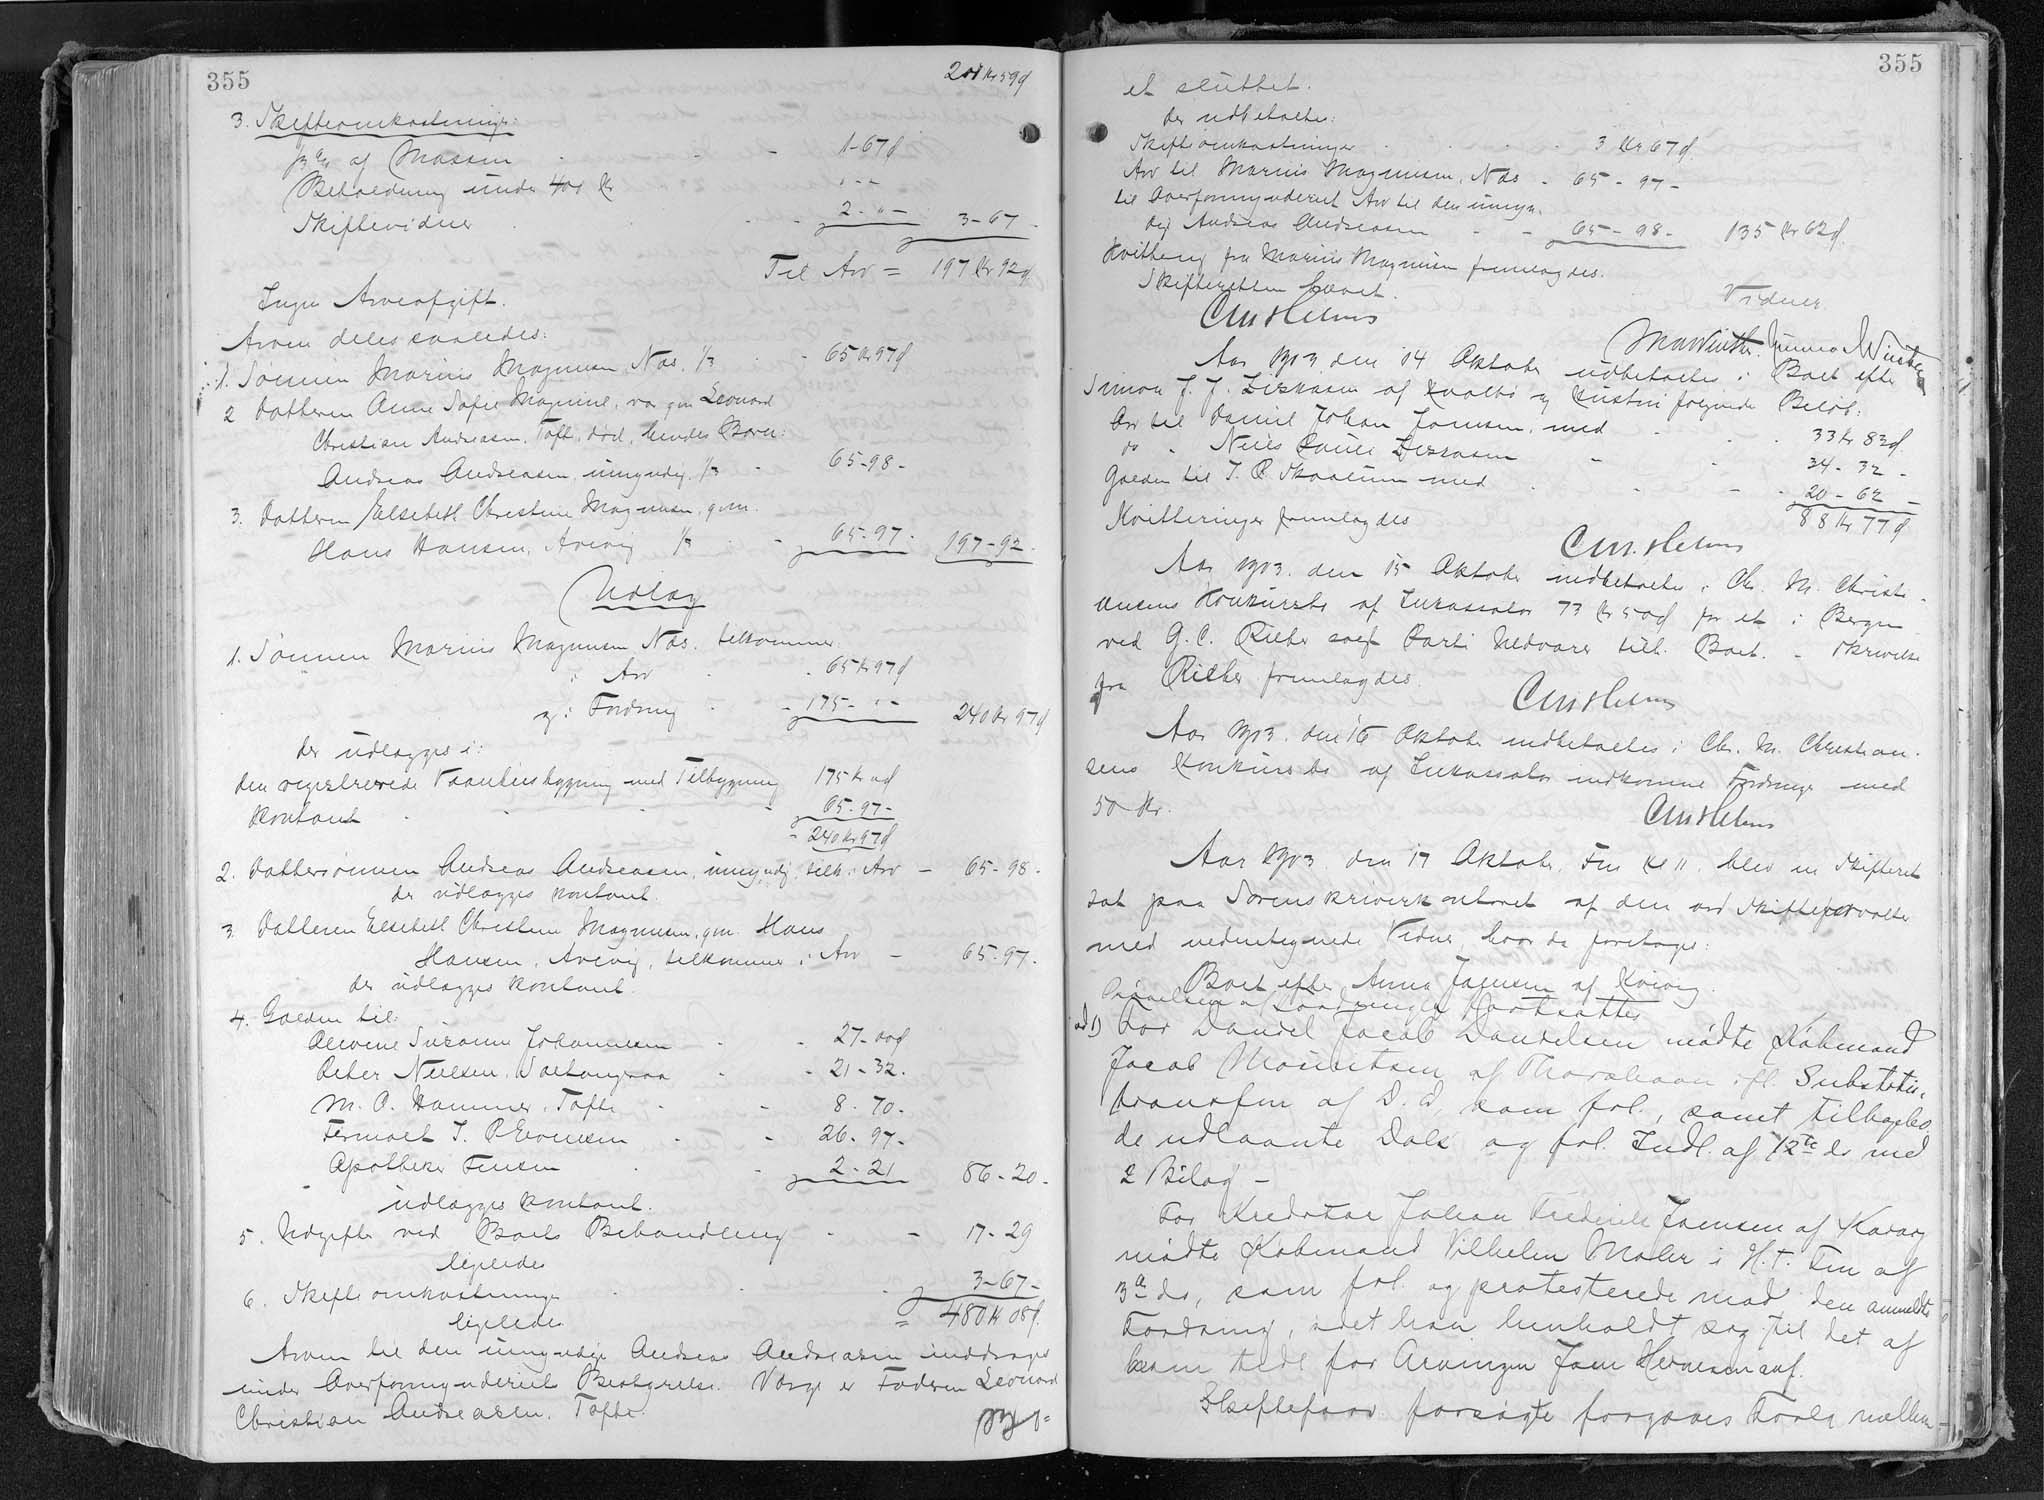 355
201 Kr 59 ø
3. Skifteomkostninger:
af Massen - - 1-67 ø
Beholdning under 400 Kr
Skiftevidner - - 2 - " - 3-67
Til Arv = 197 Kr 92 ø
Ingen Arveafgift.
Arven deles saaledes:
1. Sønnen Marius Magnusen, Næs, 1/3 - 65 Kr 97 ø
2 Datteren Anne Sofie Magnusen, var gm Leonard
Christian Andreasen, Tofte, død, hendes Børn:
Andreas Andreasen, umyndig, 1/3 - 65-98-
3. Datteren Elsebeth Christine Magnusen, gm.
Hans Hansen, Arevig 1/3 - 65-97- 197-92-
Udlæg
1. Sønnen Marius Magnusen Næs, tilkommer
i Arv - 65 Kr 97 ø
og i Fordring - 175- " - 240 Kr 97 ø
der udlægges i:
den registrerede Vaaningsbygning med Tilbygning 175 Kr " ø
Kontant - - 65-97-
= 240 Kr 97 ø
2. Dattersønnen Andreas Andreasen, umyndig, tilk. i Arv - 65-98-
der udlægges kontant.
3. Datteren Elsebeth Christine Magnusen, gm. Hans
Hansen, Arevig, tilkommer i Arv - 65-97-
der udlægges kontant.
4. Gælden til:
Susanne Johannesen - - 27-00 ø
Peter Nielsen, Saltangeraa - - 21-32-
M. C. Hammer, Tofte - - 8-70-
Firmaet J. P. - - 26-97-
Apotheker Jensen - - 2-21 86-20-
udlægges kontant.
5. Udgifter ved Boets Behandling - - 17-29
ligeledes
6. Skifteomkostninger - - 3-67-
ligeledes = 480 Kr 08 ø
Arven til den umyndige Andreas Andreasen inddrages
under Overformynderiets Bestyrelse. Værge er Faderen Leonard
Christian Andreasen, Tofte.
355
et sluttet.
der udbetaltes:
Skifteomkostninger - - - 3 Kr 67 ø
Arv til Marius Magnusen, Næs - 65-97-
til Overformynderiet Arv til den umyn-
dige Andreas Andreasen - - 65-98- 135 Kr 62 ø
Kvittering fra Marius Magnusen fremlagdes.
Skifteretten hævet.
Vidner
Aar 1903 den 14 Oktober udbetaltes i Boet efter
Simon J. J. af Kvalbø og Hustru følgende Beløb:
Arv til Daniel Johan Joensen, med - - 33 Kr 83 ø
do - Niels - - 34-32-
Gælden til J. P. med - - - 20-62-
Kvitteringer fremlagdes 88 Kr 77 ø
Aar 1903. den 15 Oktober indbetaltes i Chr. M. Christi-
ansens Konkursbo af Inkassator 73 Kr 50 ø for et i Bergen
ved G. C. Rieber solgt Parti Uldvarer tilh. Boet. - Skrivelse
fra Rieber fremlagdes.
Aar 1903. den 16 Oktober indbetaltes i Chr. M. Christian-
sens Konkursbo af Inkassator indkomne Fordringer med
50 Kr.
Aar 1903 den 17 Oktober, Fm Kl 11. blev en Skifteret
sat paa Sorenskriverkontoret af den ord. Skifteforvalter
med undertegnede Vidner, hvor da foretoges:
Boet efter Anna Joensen af Kvivig.
Prøvelsen af Fordringer fortsattes
ad 1) For Daniel Jacob Danielsen mødte Købmand
Jacob Mouritsen af Thorshavn ifl. Substitu-
tionsfm af D. D, som frl., samt tilbagelev.
de udlaante Dok. og frl. Indl. af 12te ds med
2 Bilag -
For Kreditor Johan Frederik Joensen af Kvivig
mødte Købmand Vilhelm Müller i H. t. Fm af
3de ds, som frl. og protesterede mod den anmeldte
Fordring, idet han henholdt sig til det af
ham tidl. for Arvingen anf.
Skifteforv. forsøgte forgæves Forlig mellem